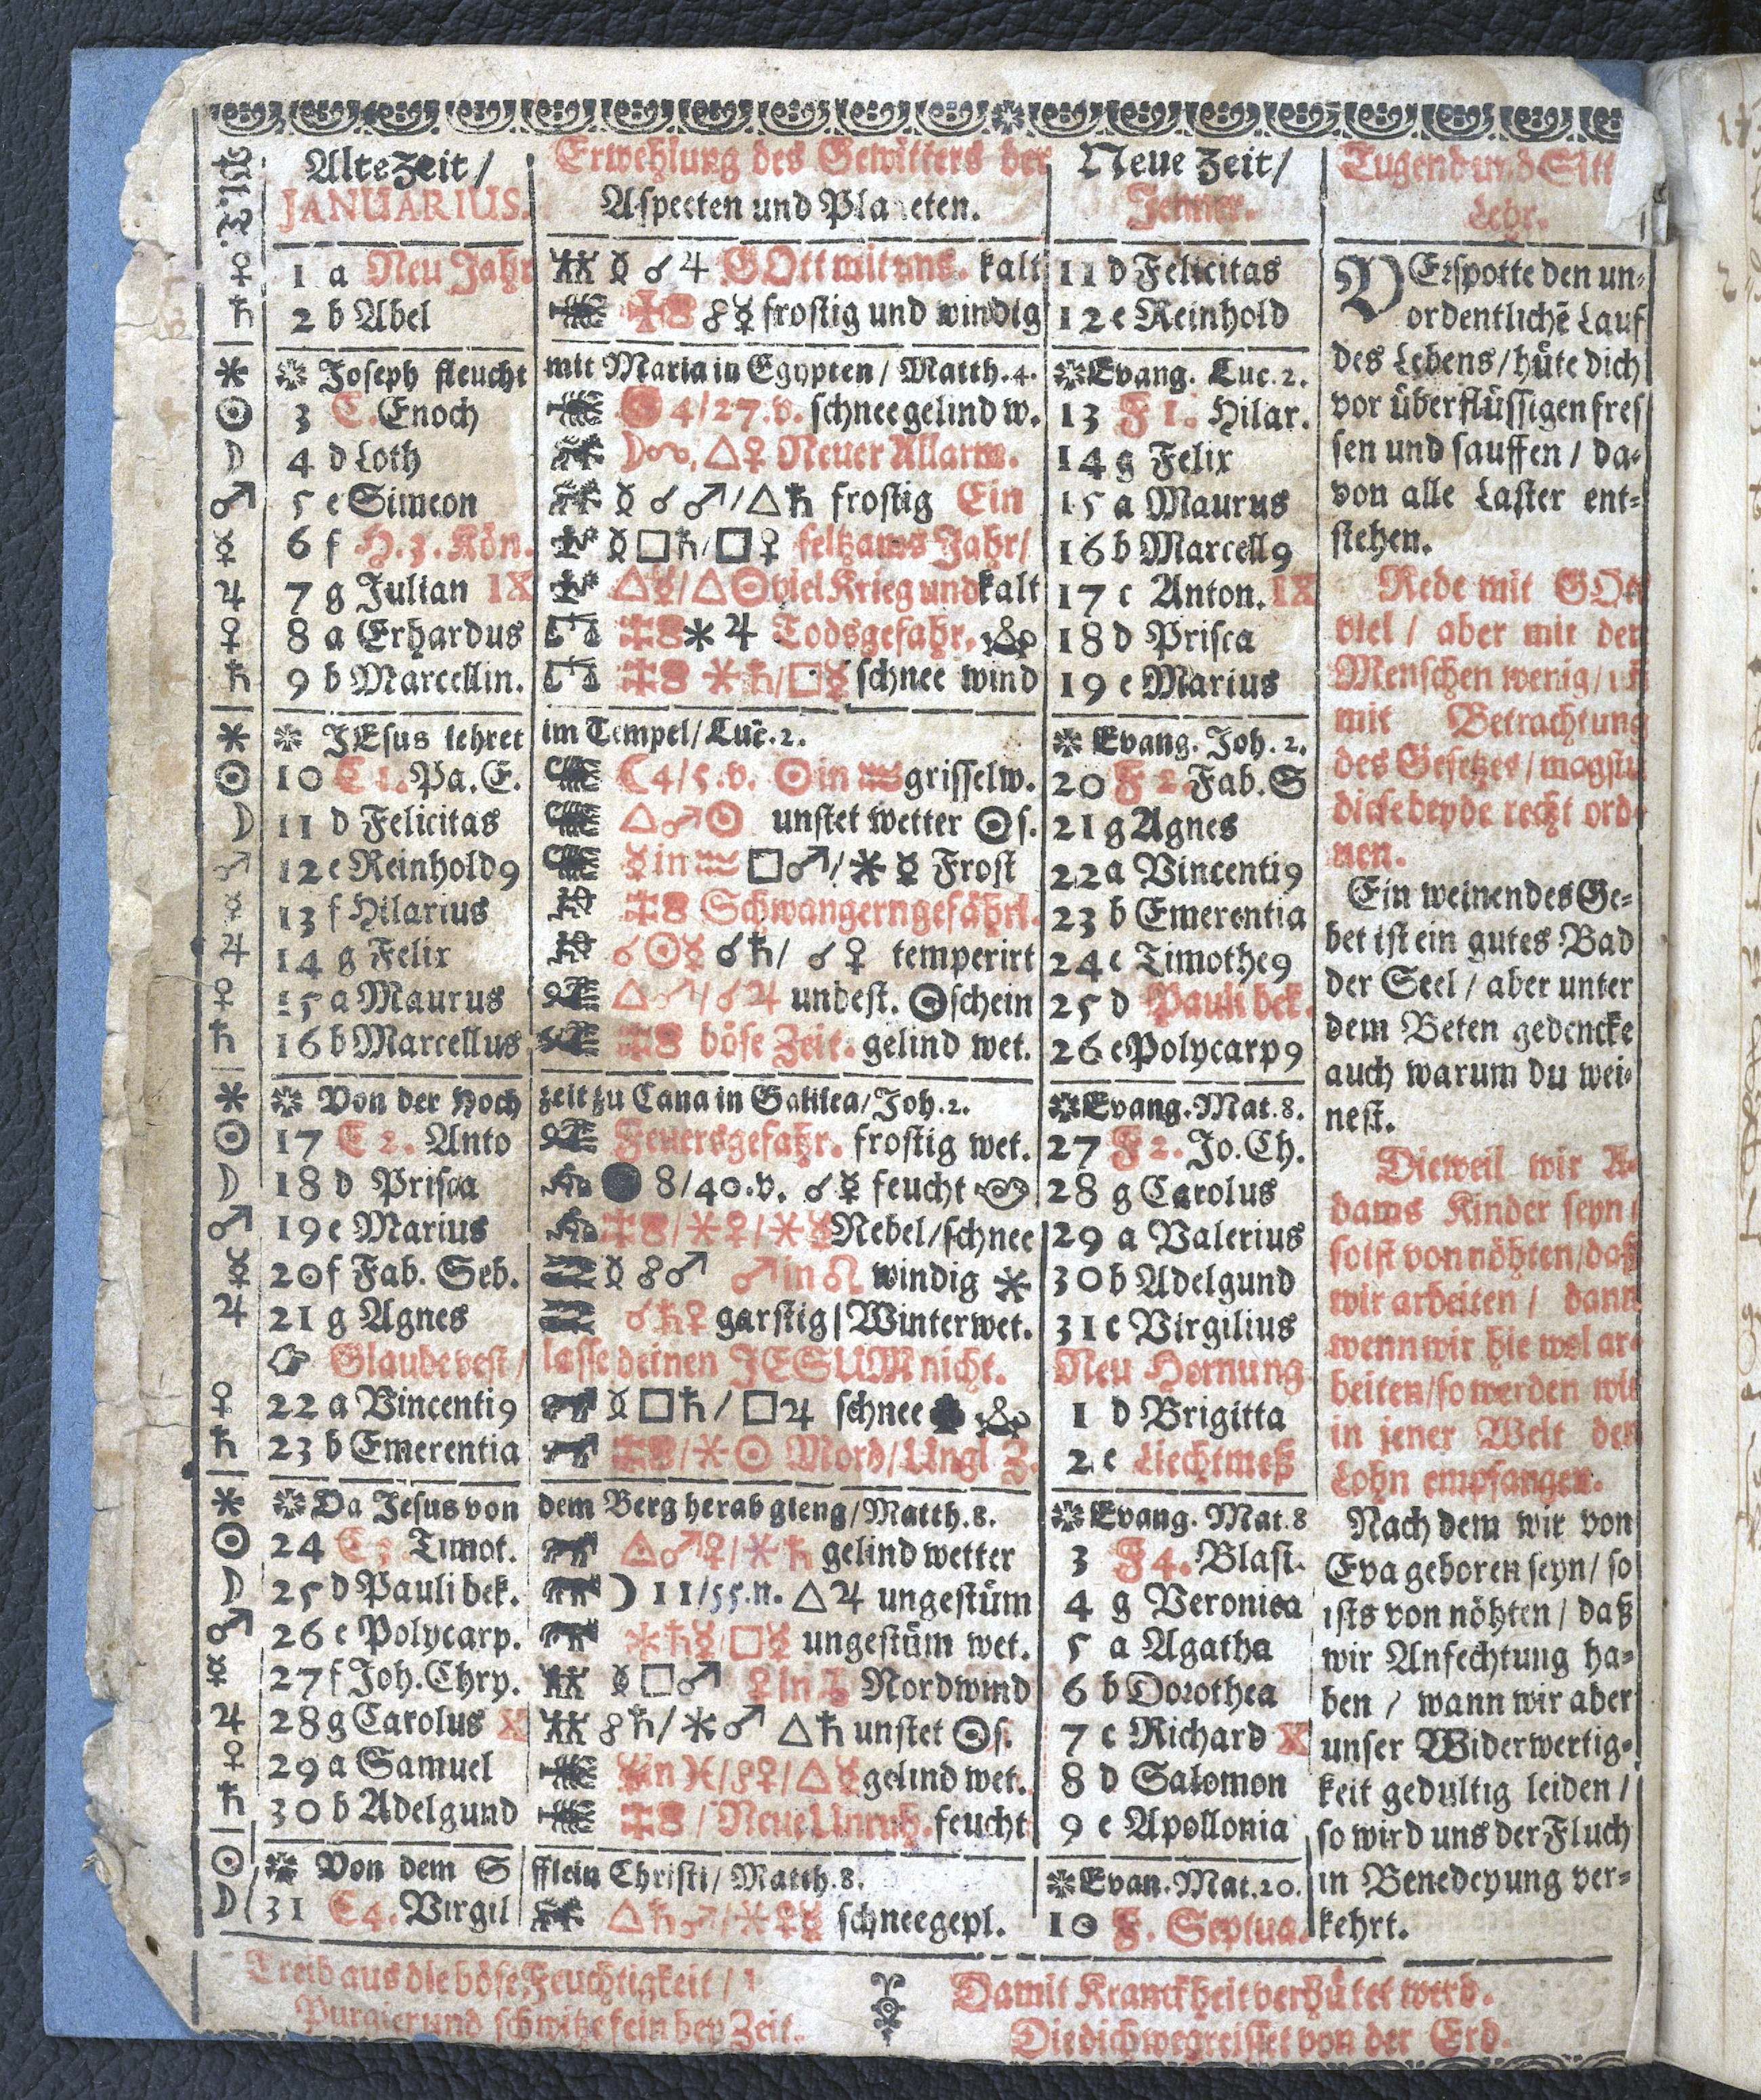 Alte Zeit /
JANUARIUS.
Erwehlung des Gewitters der
Aspecten und Planeten.
Neue Zeit /
Jenner.
Tugend und Sitt
Lehr.
♀ 1 a Neu Jahr ☿ ☌ ♃ GOtt mit uns. kalt 11 d Felicitas
♄ 2 b Abel ☍ ☿ frostig und windig 12 e Reinhold
* Joseph fleucht mit Maria in Egypten / Matth. 4. Evang. Luc. 2.
☉ 3 C. Enoch 4/27. v. schnee gelind w. 13 F 1. Hilar.
☽ 4 d Loth △ ♀ Neuer Allarm. 14 g Felix
♂ 5 e Simeon ☿ ☌ ♂ / △ ♄ frostig Ein 15 a Maurus
☿ 6 f H. 3. Kön. ☿ □ ♄ / □ ♀ seltzams Jahr / 16 b Marcell9
♃ 7 g Julian IX △ ☿ / △ ☉ viel Krieg und kalt 17 c Anton. IX
♀ 8 a Erhardus * ♃ Todsgefahr. 18 d Prisca
♄ 9 b Marcellin. * ♄ / □ ☿ schnee wind 19 e Marius
* JEsus lehret im Tempel / Luc. 2. Evang. Joh. 2.
☉ 10 C 1. Pa. E. ☾ 4/5. v. ☉ in ♒ grisselw. 20 F 2. Fab. S
☽ 11 d Felicitas △ ♂ ☉ unstet wetter ☉ s. 21 g Agnes
♂ 12 e Reinhold9 ☿ in ♒ □ ♂ / * ☿ Frost 22 a Vincenti9
☿ 13 f Hilarius Schwangern gefährl. 23 b Emerentia
♃ 14 g Felix ☌ ☉ ☿ ☌ ♄ / ☌ ♀ temperirt 24 c Timothe9
♀ 15 a Maurus △ ♂ / ☌ ♃ unbest. ☉schein 25 d Pauli bek.
♄ 16 b Marcellus böse Zeit. gelind wet. 26 e Polycarp9
* Von der Hoch zeit zu Cana in Galilea / Joh. 2. Evang. Mat. 8.
☉ 17 C 2. Anto Feuersgefahr. frostig wet. 27 F 2. Jo. Ch.
☽ 18 d Prisca ● 8/40. v. ☌ ☿ feucht 28 g Carolus
♂ 19 e Marius / * ♀ / * ☿ Nebel / schnee 29 a Valerius
☿ 20 f Fab. Seb. ☿ ☍ ♂ ♂ in ♌ windig * 30 b Adelgund
♃ 21 g Agnes ☌ ♄ ♀ garstig | Winterwet. 31 c Virgilius
Glaube vest / lasse deinen JESUM nicht. Neu Hornung
♀ 22 a Vincenti9 ☿ □ ♄ / □ ♃ schnee 1 d Brigitta
♄ 23 b Emerentia / * ☉ Mord / Ungl Z. 2 e Liechtmeß
* Da Jesus von dem Berg herab gieng / Matth. 8. Evang. Mat. 8
☉ 24 C 3 Timot. △ ♂ ♀ / * ♄ gelind wetter 3 F 4. Blasi.
☽ 25 d Pauli bek. ☽ 11/55. n. △ ♃ ungestüm 4 g Veronica
♂ 26 e Polycarp. * ♄ ☿ / □ ☿ ungestüm wet. 5 a Agatha
☿ 27 f Joh. Chry. ☿ □ ♂ ♀ in ♑ Nordwind 6 b Dorothea
♃ 28 g Carolus X ☍ ♄ / * ♂ △ ♄ unstet ☉ s. 7 c Richard X
♀ 29 a Samuel in ♓ / ☍ ♀ / △ ☿ gelind wet. 8 d Salomon
♄ 30 b Adelgund / Neue Unruh. feucht 9 e Apollonia
☉ Von dem S fflein Christi / Matth. 8. Evan. Mat. 20.
☽ 31 C 4. Virgil △ ♄ ♂ / * ♀ ☿ schneegepl. 10 F. Septua.
VErspotte den un-
ordentlichē Lauf
des Lebens / hüte dich
vor überflüssigen fres
sen und sauffen / da-
von alle Laster ent-
stehen.
Rede mit GOtt
viel / aber mit den
Menschen wenig / uñ
mit Betrachtung
des Gesetzes / magstu
diese beyde recht ord-
nen.
Ein weinendes Ge-
bet ist ein gutes Bad
der Seel / aber unter
dem Beten gedencke
auch warum du wei-
nest.
Dieweil wir A-
dams Kinder seyn /
so ist von nöhten / daß
wir arbeiten / dann
wenn wir hie wol ar-
beiten / so werden wir
in jener Welt den
Lohn empfangen.
Nach dem wir von
Eva geboren seyn / so
ists von nöhten / daß
wir Anfechtung ha-
ben / wann wir aber
unser Widerwertig-
keit gedultig leiden /
so wird uns der Fluch
in Benedeyung ver-
kehrt.
Treib aus die böse Feuchtigkeit /
Purgier und schwitze fein bey Zeit.
Damit Kranckheit verhütet werd.
Die dich wegreisset von der Erd.